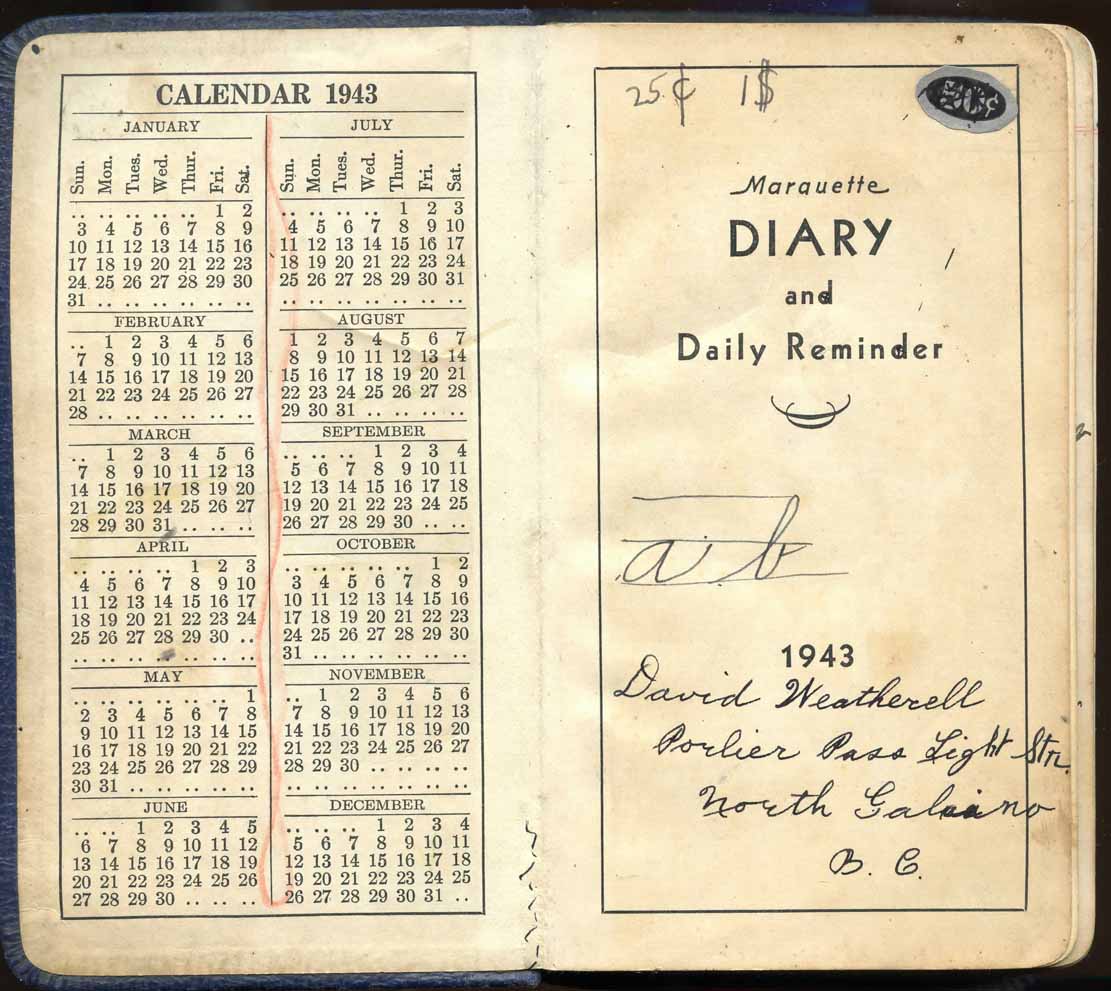 CALENDAR 1943
JANUARY
Sun. Mon. Tues. Wed. Thur. Fri. Sat.
.. .. .. .. .. 1 2
3 4 5 6 7 8 9
10 11 12 13 14 15 16
17 18 19 20 21 22 23
24 25 26 27 28 29 30
31 .. .. .. .. .. ..
FEBRUARY
.. 1 2 3 4 5 6
7 8 9 10 11 12 13
14 15 16 17 18 19 20
21 22 23 24 25 26 27
28 .. .. .. .. .. ..
MARCH
.. 1 2 3 4 5 6
7 8 9 10 11 12 13
14 15 16 17 18 19 20
21 22 23 24 25 26 27
28 29 30 31 .. .. ..
APRIL
.. .. .. .. 1 2 3
4 5 6 7 8 9 10
11 12 13 14 15 16 17
18 19 20 21 22 23 24
25 26 27 28 29 30 ..
.. .. .. .. .. .. ..
MAY
.. .. .. .. .. .. 1
2 3 4 5 6 7 8
9 10 11 12 13 14 15
16 17 18 19 20 21 22
23 24 25 26 27 28 29
30 31 .. .. .. .. ..
JUNE
.. .. 1 2 3 4 5
6 7 8 9 10 11 12
13 14 15 16 17 18 19
20 21 22 23 24 25 26
27 28 29 30 .. .. ..
JULY
Sun. Mon. Tues. Wed. Thur. Fri. Sat.
.. .. .. .. 1 2 3
4 5 6 7 8 9 10
11 12 13 14 15 16 17
18 19 20 21 22 23 24
25 26 27 28 29 30 31
.. .. .. .. .. .. ..
AUGUST
1 2 3 4 5 6 7
8 9 10 11 12 13 14
15 16 17 18 19 20 21
22 23 24 25 26 27 28
29 30 31 .. .. .. ..
SEPTEMBER
.. .. .. 1 2 3 4
5 6 7 8 9 10 11
12 13 14 15 16 17 18
19 20 21 22 23 24 25
26 27 28 29 30 .. ..
OCTOBER
.. .. .. .. .. 1 2
3 4 5 6 7 8 9
10 11 12 13 14 15 16
17 18 19 20 21 22 23
24 25 26 27 28 29 30
31 .. .. .. .. .. ..
NOVEMBER
.. 1 2 3 4 5 6
7 8 9 10 11 12 13
14 15 16 17 18 19 20
21 22 23 24 25 26 27
28 29 30 .. .. .. ..
.. .. .. .. .. .. ..
DECEMBER
.. .. .. 1 2 3 4
5 6 7 8 9 10 11
12 13 14 15 16 17 18
19 20 21 22 23 24 25
26 27 28 29 30 31 ..
25¢ 1$
Marquette
DIARY
and
Daily Reminder
a b
1943
David Weatherell
Porlier Pass Light Stn.
North Galiano
B. C.